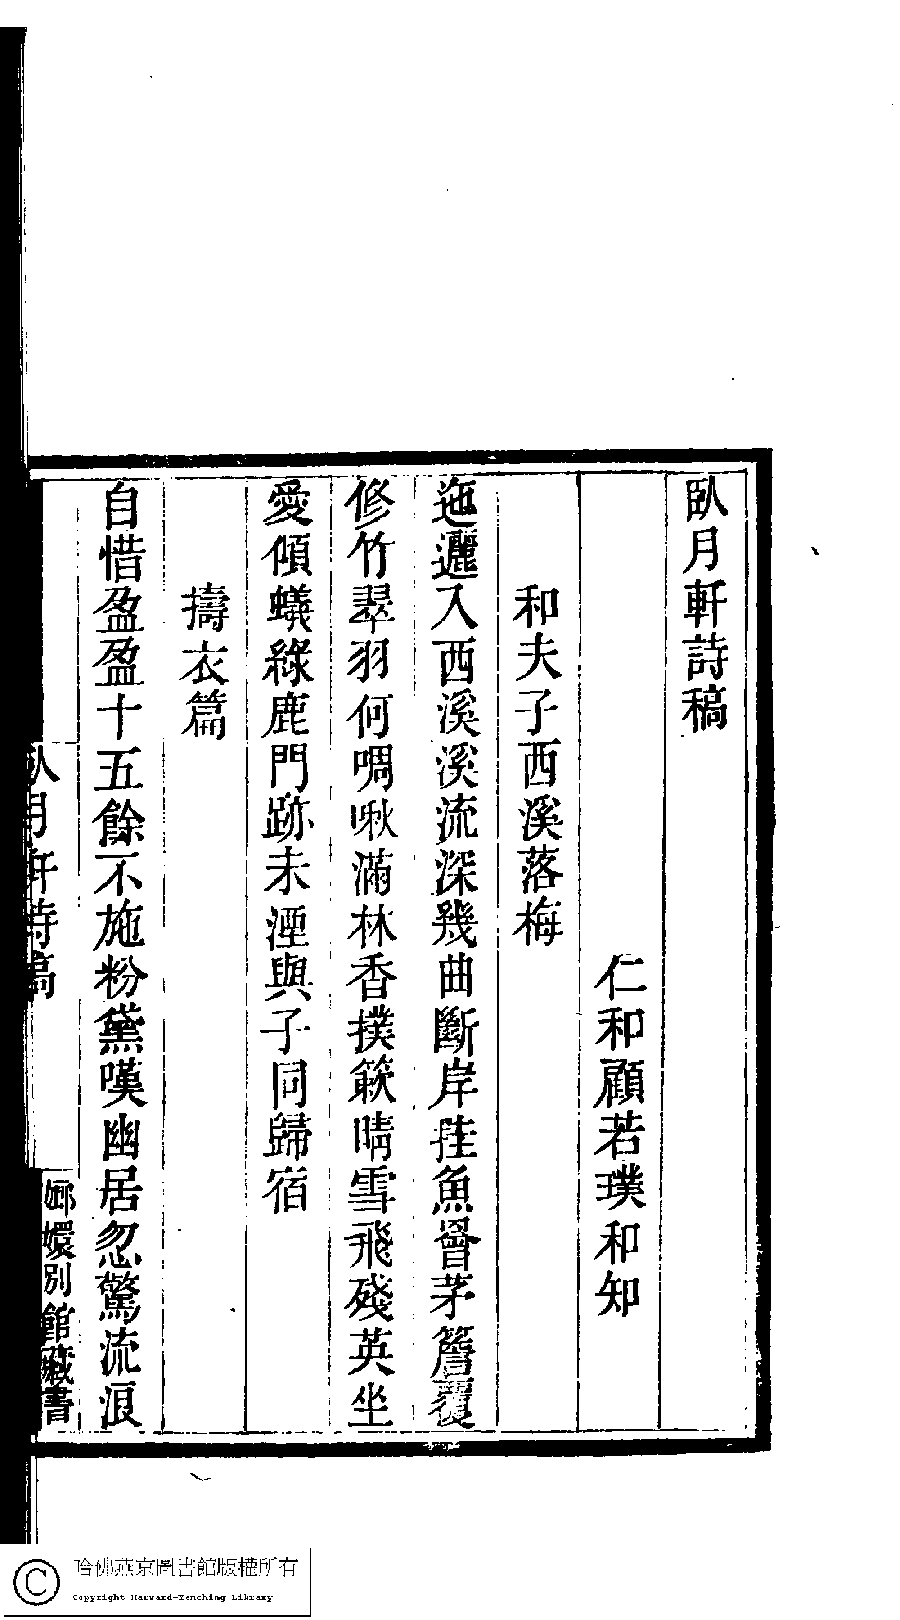 臥月軒詩稿
仁和顧若璞和知
和夫子西溪落梅
迤邐入西溪溪流深幾曲斷岸挂魚罾茅簷覆
修竹翠羽何啁啾滿林香撲簌晴雪飛殘英坐
愛傾蟻綠鹿門跡未湮與子同歸宿
擣衣篇
自惜盈盈十五餘不施粉黛嘆幽居忽驚流浪
臥月軒詩稿
嫏嬛別館藏書
哈佛燕京圖書館版權所有
Copyright Harvard-Yenching Library